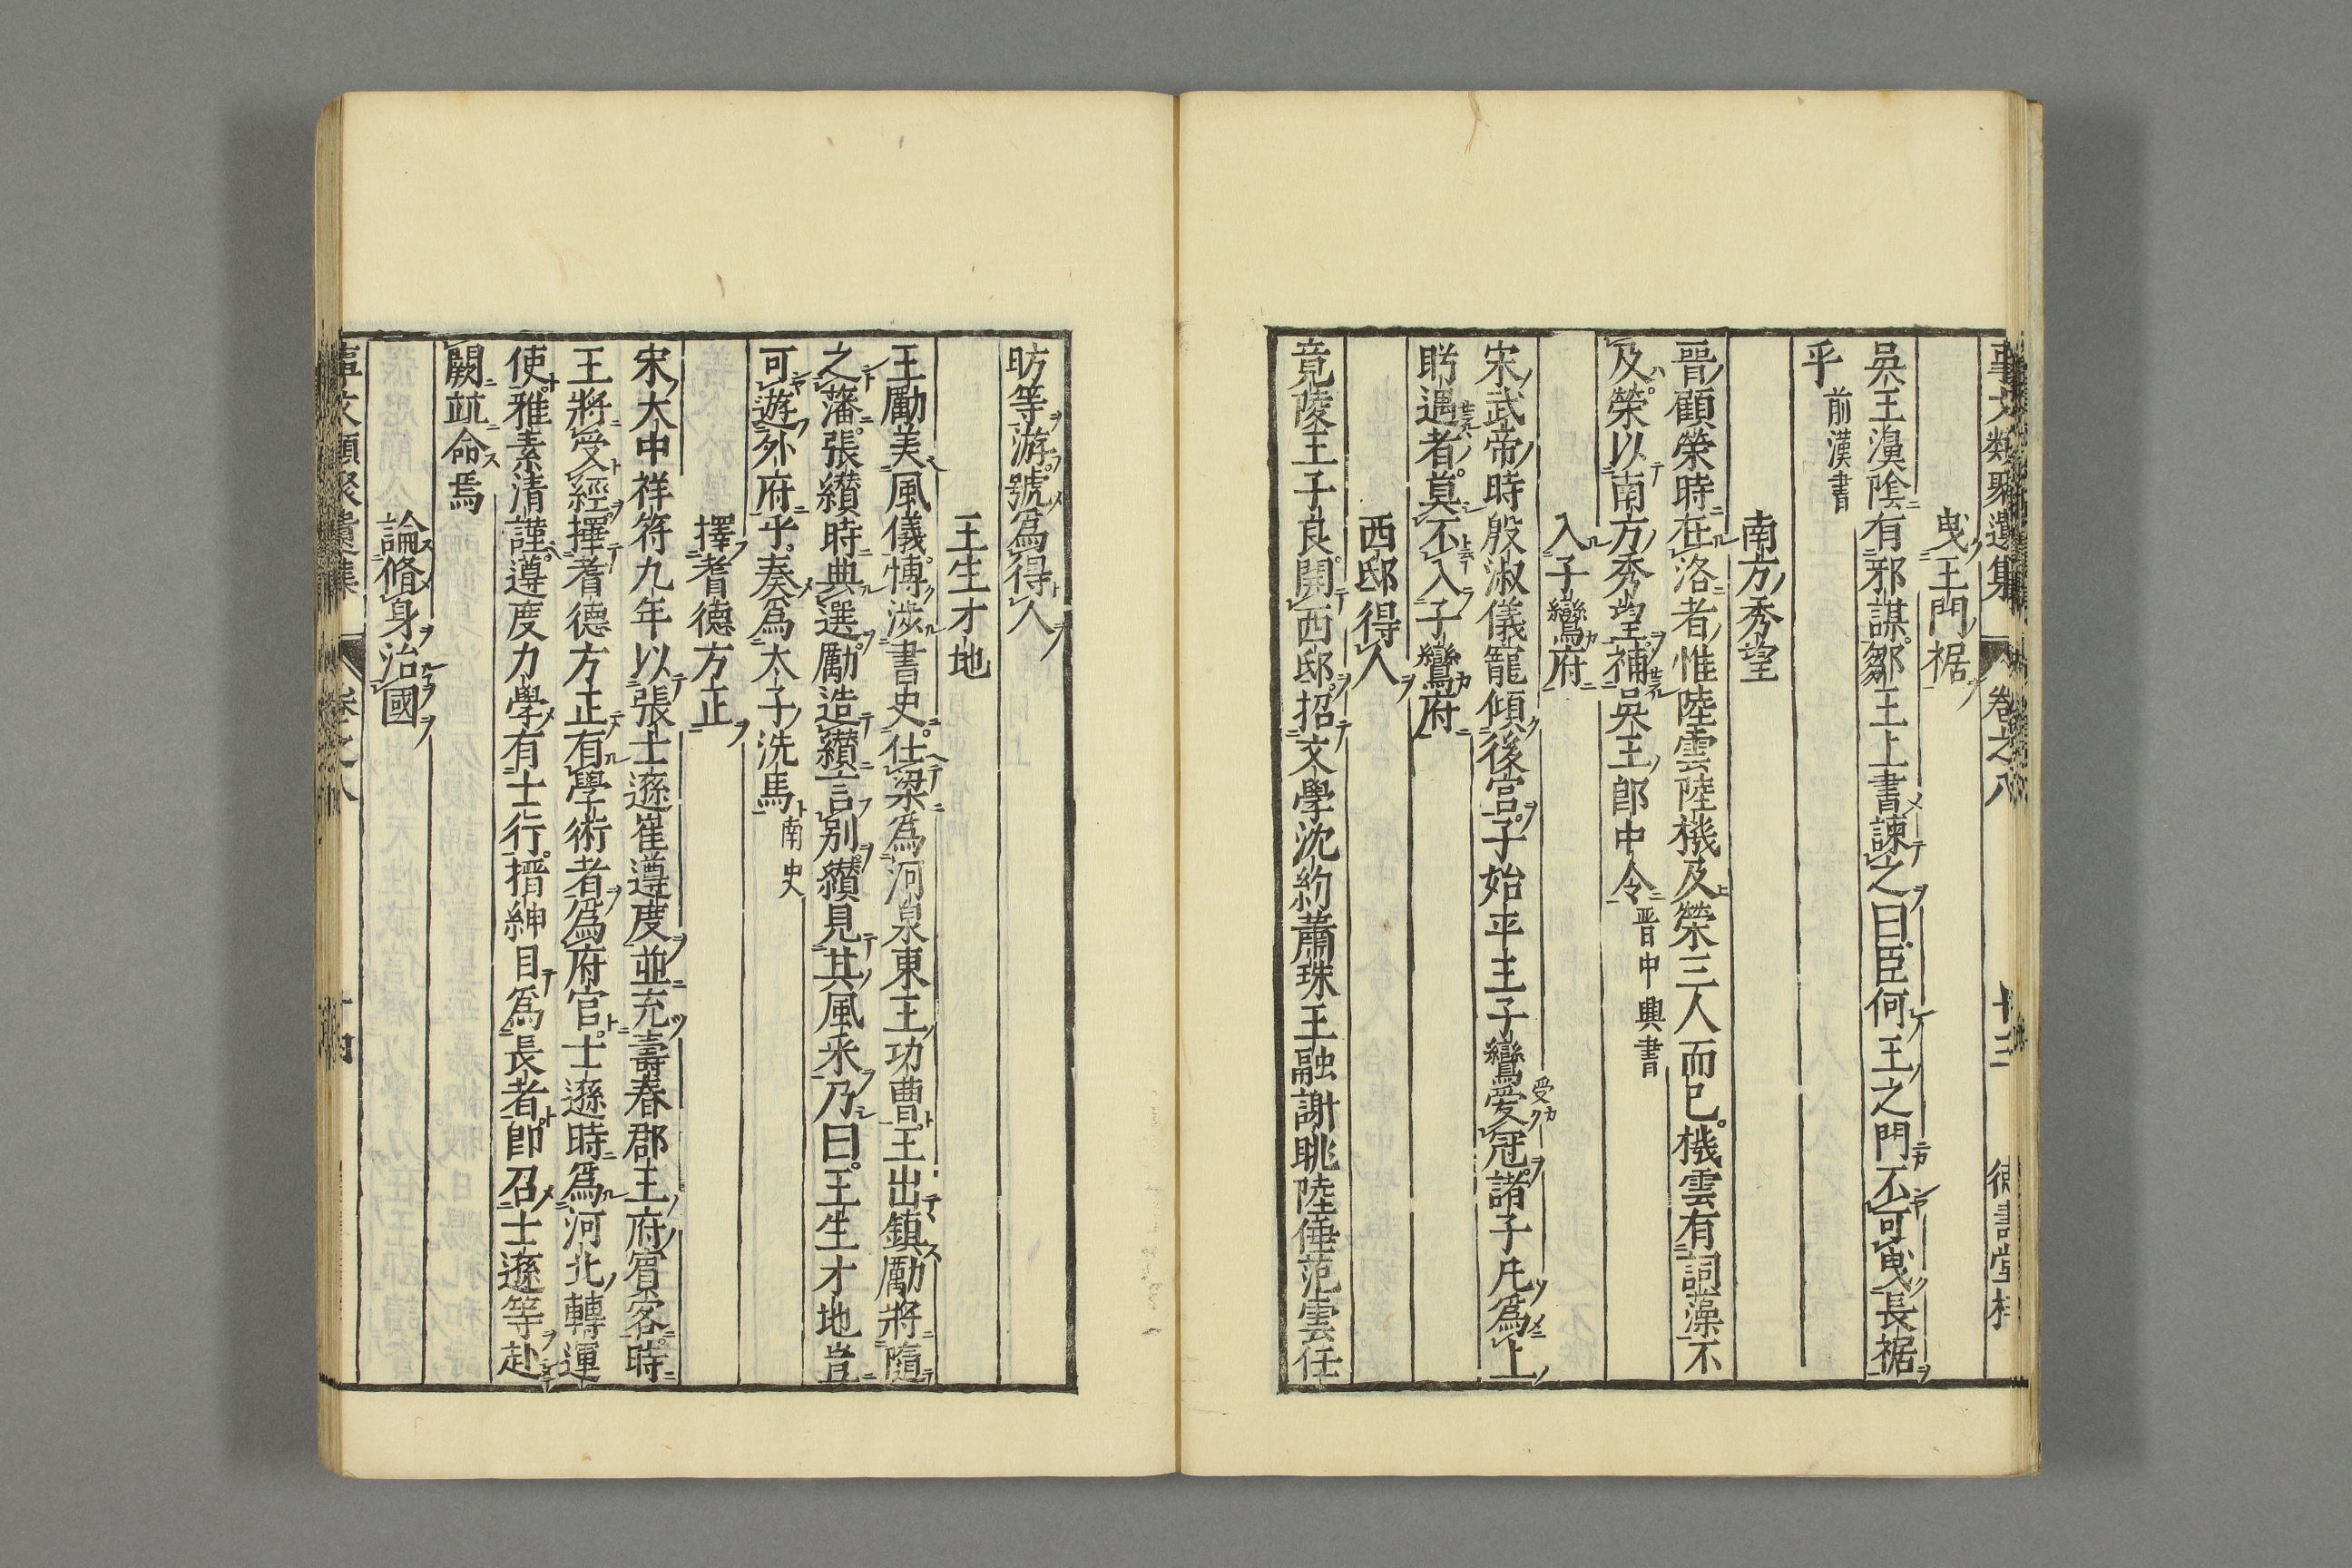 事文類聚遺集 卷之八 十三
曳王門裾
吳王濞陰有邪謀鄒王上書諫之曰臣何王之門不可曳長裾
乎前漢書
南方秀望
晉顧榮時在洛者惟陸雲陸機及榮三人而已機雲有詞藻不
及榮以南方秀望補吳王郎中令晋中興書
入子鸞府
宋武帝時殷淑儀寵傾後宮子始平王子鸞愛冠諸子凡爲上
眄遇者莫不入子鸞府
西邸得人
竟陵王子良開西邸招文學沈約蕭珠王融謝眺陸倕范雲任
昉等游號爲得人
王生才地
王勵美風儀愽涉書史仕梁爲河泉東王功曹王出鎮勵將隨
之藩張纘時典選勵造纘言別纘見其風采乃曰王生才地豈
可遊外府乎奏爲太子洗馬南史
擇耆德方正
宋大中祥符九年以張士遜崔遵度並充壽春郡王府賓客時
王將受經擇耆德方正有學術者爲府官士遜時爲河北轉運
使雅素清謹遵度力學有士行搢紳目爲長者即召士遜等赴
闕竝命焉
論脩身治國
事文類聚遺集 卷之八